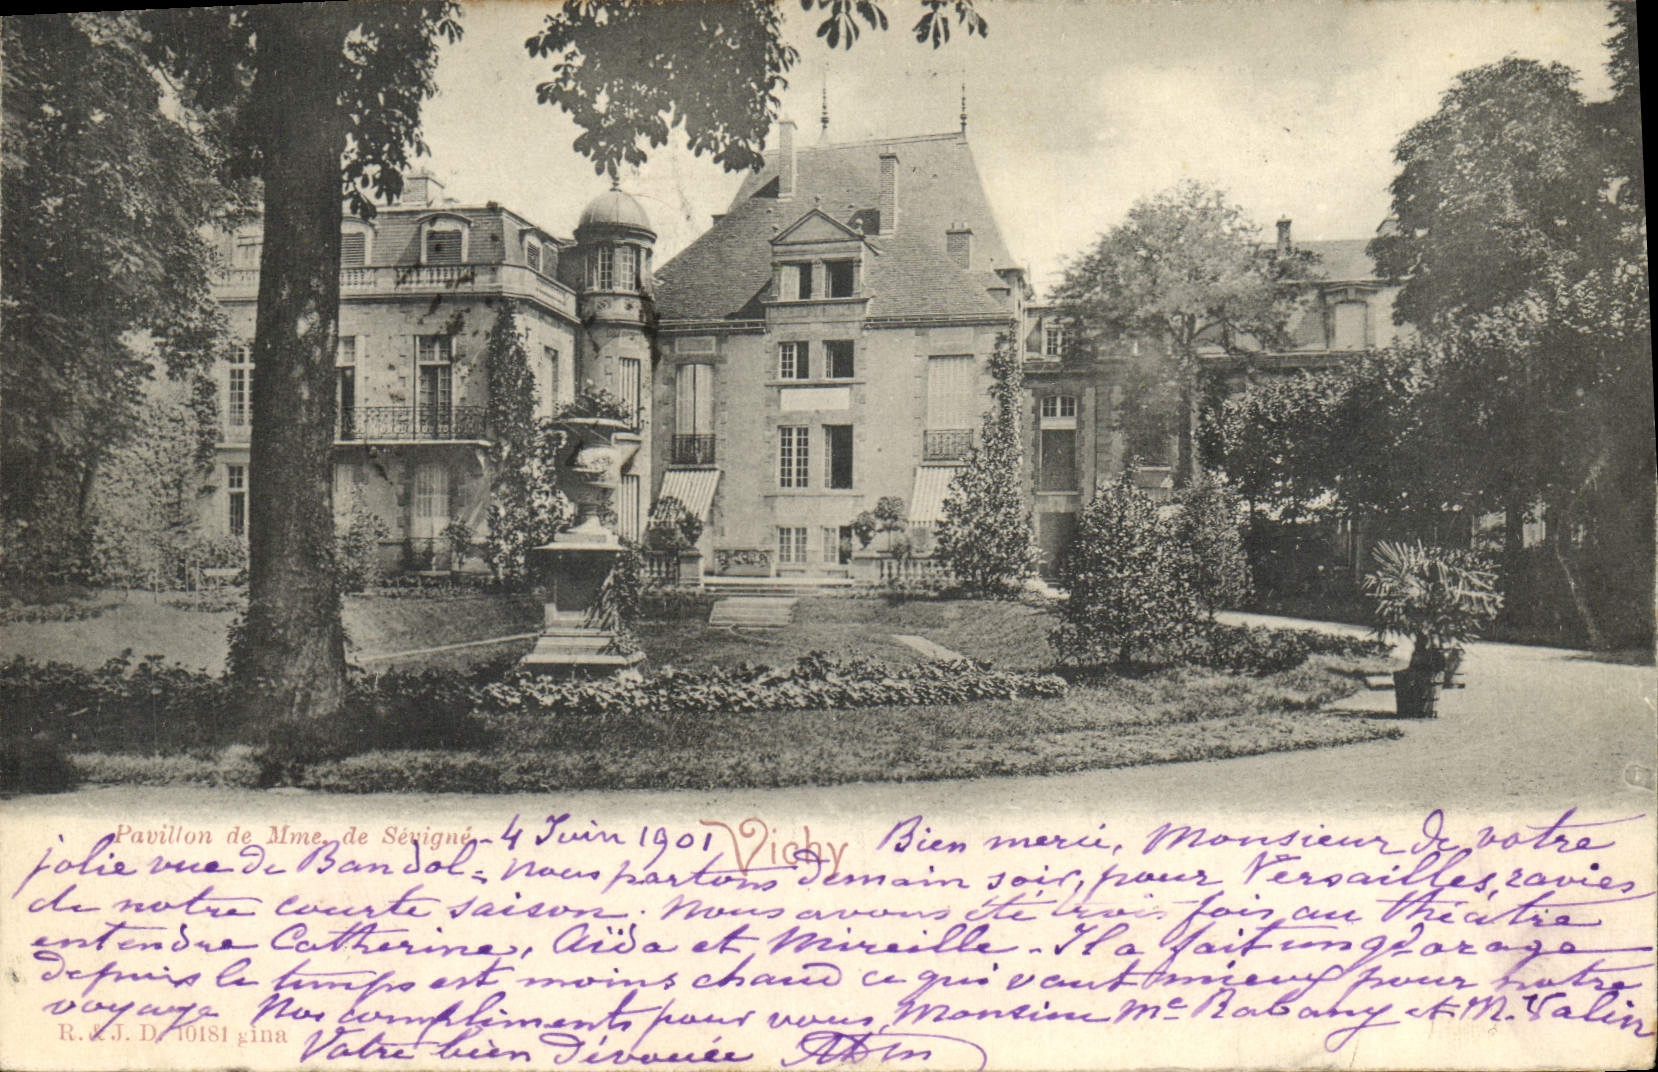 Pavillon de Mme. de Sévigné - 4 Juin 1901 Vichy Bien merci, Monsieur de votre
jolie vue de Bandol - nous partons demain soir, pour Versailles, ravies
de notre courte saison. Nous avons été trois fois au théâtre
entendre Catherine, Aïda et Mireille - Il a fait un gd orage
depuis le temps est moins chaud ce qui vaut mieux pour notre
voyage Nos compliments pour vous, Monsieur Me Rabany et M. Valin
R. & J. D. 10181 gina
Votre bien dévouée